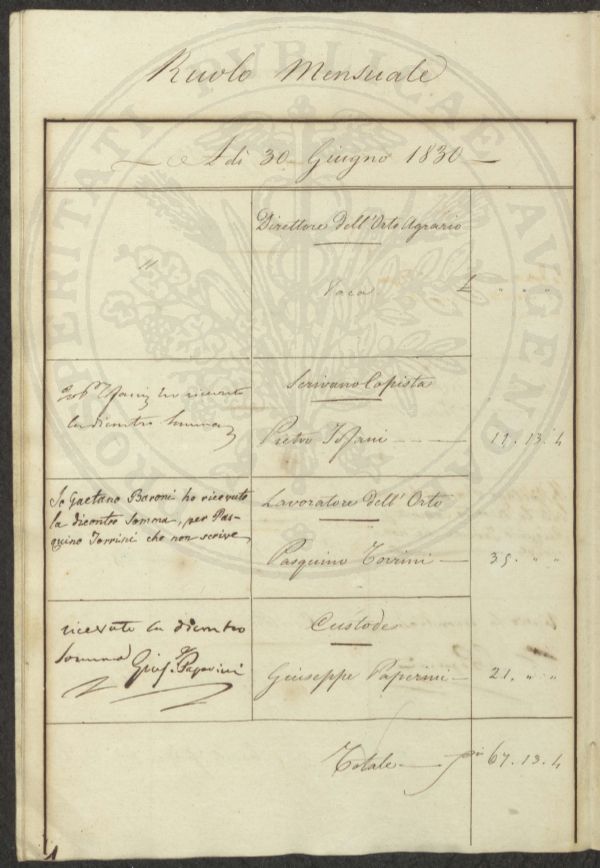 Ruolo Mensuale
A dì 30 Giugno 1830
Direttore dell'Orto Agrario
"
Vaca £ " " "
Scrivano Copista
ho ricevuto
la dicontro Somma
Pietro Isfani 11. 13. 4
Io Gaetano Baroni ho ricevuto
la dicontro Somma, per Pas-
quino Torrini che non scrive
Lavoratore dell'Orto
Pasquino Torrini 35. " "
ricevuto la dicontro
Somma Gius. Paperini
Custode
Giuseppe Paperini 21. " "
Totale 67. 13. 4
PROSPERITATI PUBLICAE AUGENDAE